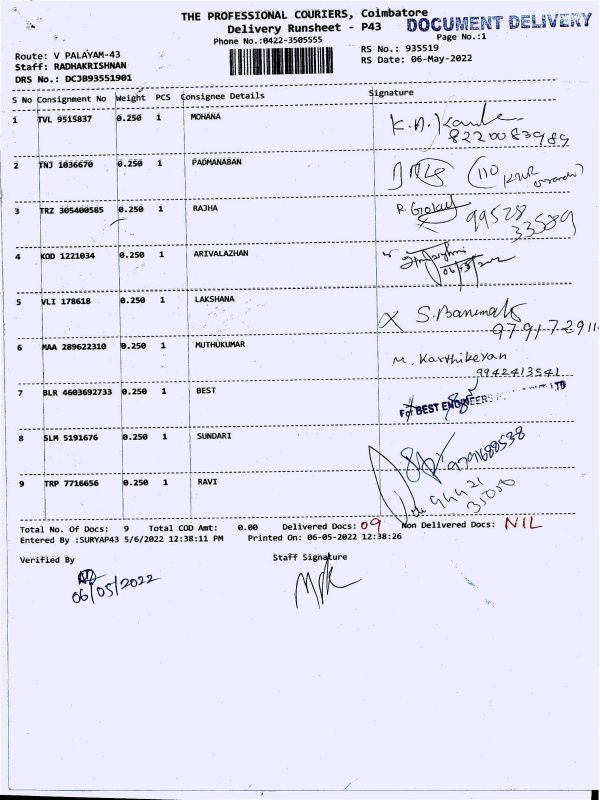 THE PROFESSIONAL COURIERS, Coimbatore
DOCUMENT DELIVERY
Delivery Runsheet - P43
Page No.:1
Phone No.:0422-3505555
Route: V PALAYAM-43
RS No.: 935519
Staff: RADHAKRISHNAN
RS Date: 06-May-2022
DRS No.: DCJB93551901
S No Consignment No Weight PCS Consignee Details Signature
1 TVL 9515837 0.250 1 MOHANA
8220083989
2 TNJ 1036670 0.250 1 PADMANABAN
(110
3 TRZ 305400585 0.250 1 RAJHA R Gokul 99528
33589
4 KOD 1221034 0.250 1 ARIVALAZHAN
5 VLI 178618 0.250 1 LAKSHANA
97917 2911
6 MAA 289622310 0.250 1 MUTHUKUMAR M. Karthikeyan
9942413541
7 BLR 4603692733 0.250 1 BEST
For BEST ENGINEERS LTD
8 SLM 5191676 0.250 1 SUNDARI
9791688538
9 TRP 7716656 0.250 1 RAVI
94421
35050
Total No. Of Docs: 9 Total COD Amt: 0.00 Delivered Docs: 09 Non Delivered Docs: NIL
Entered By :SURYAP43 5/6/2022 12:38:11 PM Printed On: 06-05-2022 12:38:26
Verified By Staff Signature
06/05/2022